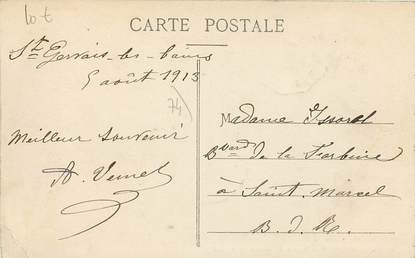 lot
CARTE POSTALE
St Gervais-les-bains
5 août 1913
74
Meilleur souvenir
A. Vernet
Madame Issorel
Bverd de la Forbine
à Saint Marcel
B. d. R.